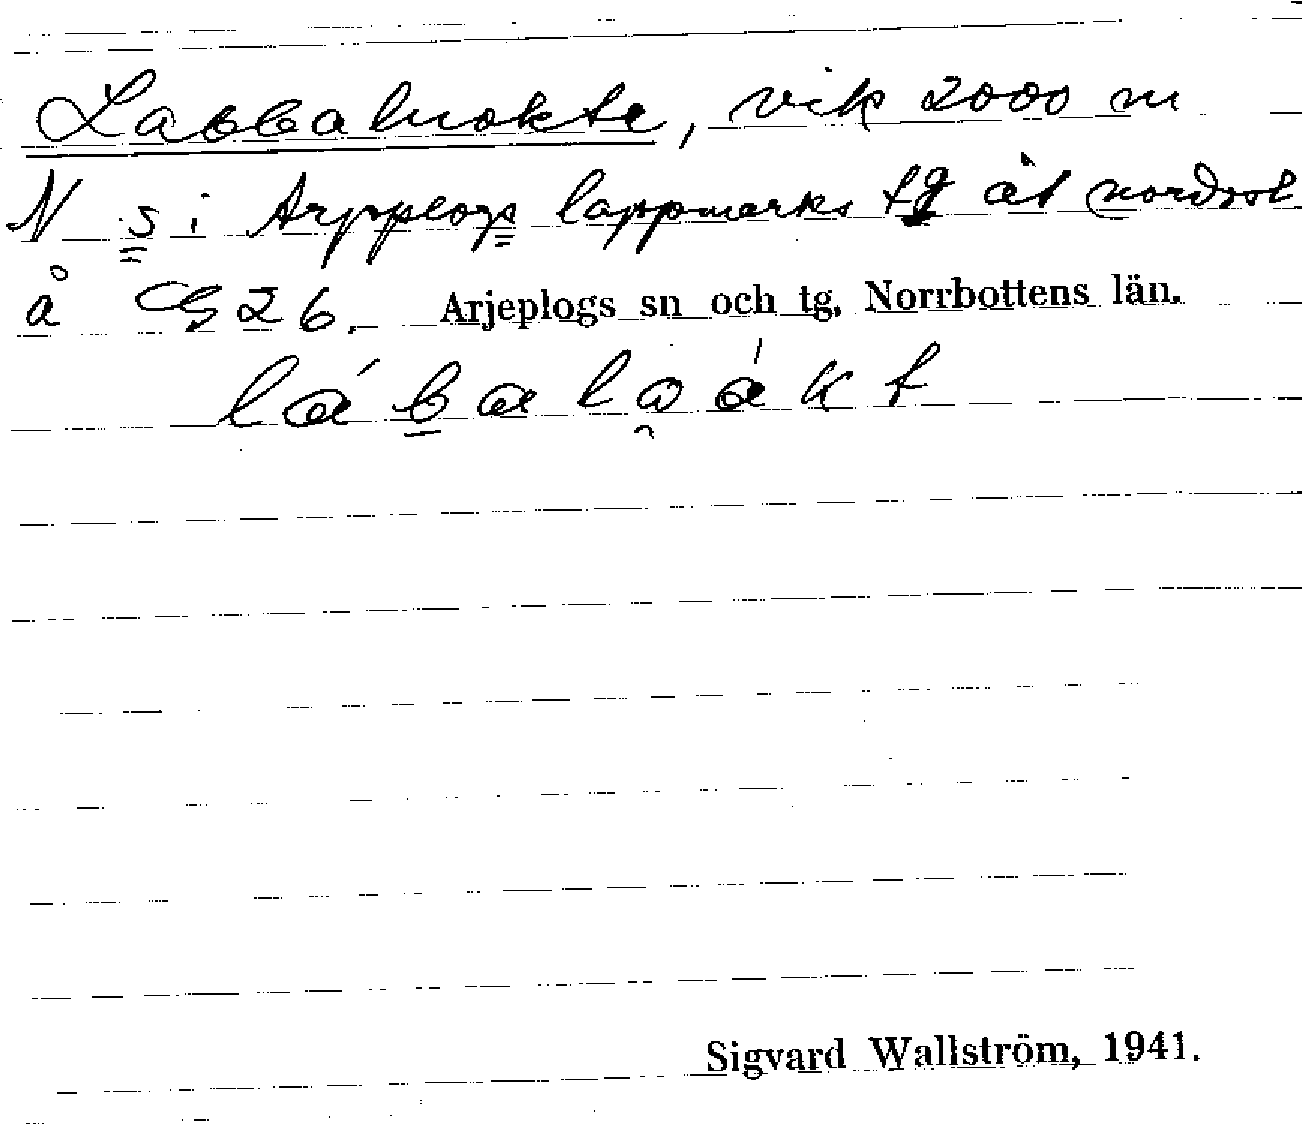 Labbaluokte, vik 2000 m
N s i Arjeplogs lappmarks tg åt nordost
å G 26. Arjeplogs sn och tg, Norrbottens län.
lábaloákt
Sigvard Wallström, 1941.